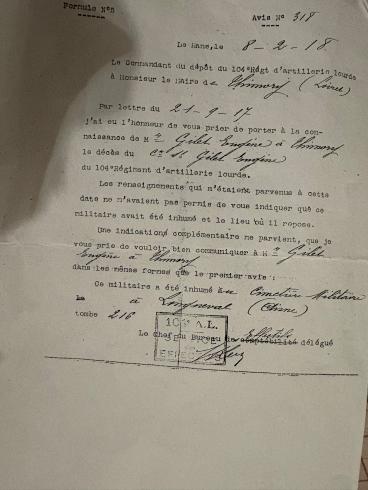 Formule N°5
Avis N° 318
Le Mans, le 8-2-18.
Le Commandant du dépôt du 104°Régt d'artillerie lourde
à Monsieur le Maire de Chimory (Loiret)
Par lettre du 21-9-17
j'ai eu l'honneur de vous prier de porter à la con-
naissance de M Gilet Eugène à Chimory
le décès du Gilet Eugène
du 104°Régiment d'artillerie lourde.
Les renseignements qui n'étaient parvenus à cette
date ne n'avaient pas permis de vous indiquer que ce
militaire avait été inhumé et le lieu où il repose.
Une indication complémentaire ne parvient, que je
vous prie de vouloir bien communiquer à M Gilet
Eugène à Chimory
dans les mêmes formes que le premier avis :
Ce militaire a été inhumé au Cimetière Militaire
à (Oise)
tombe 216
Le Chef du Bureau de comptabilité délégué
A.L.